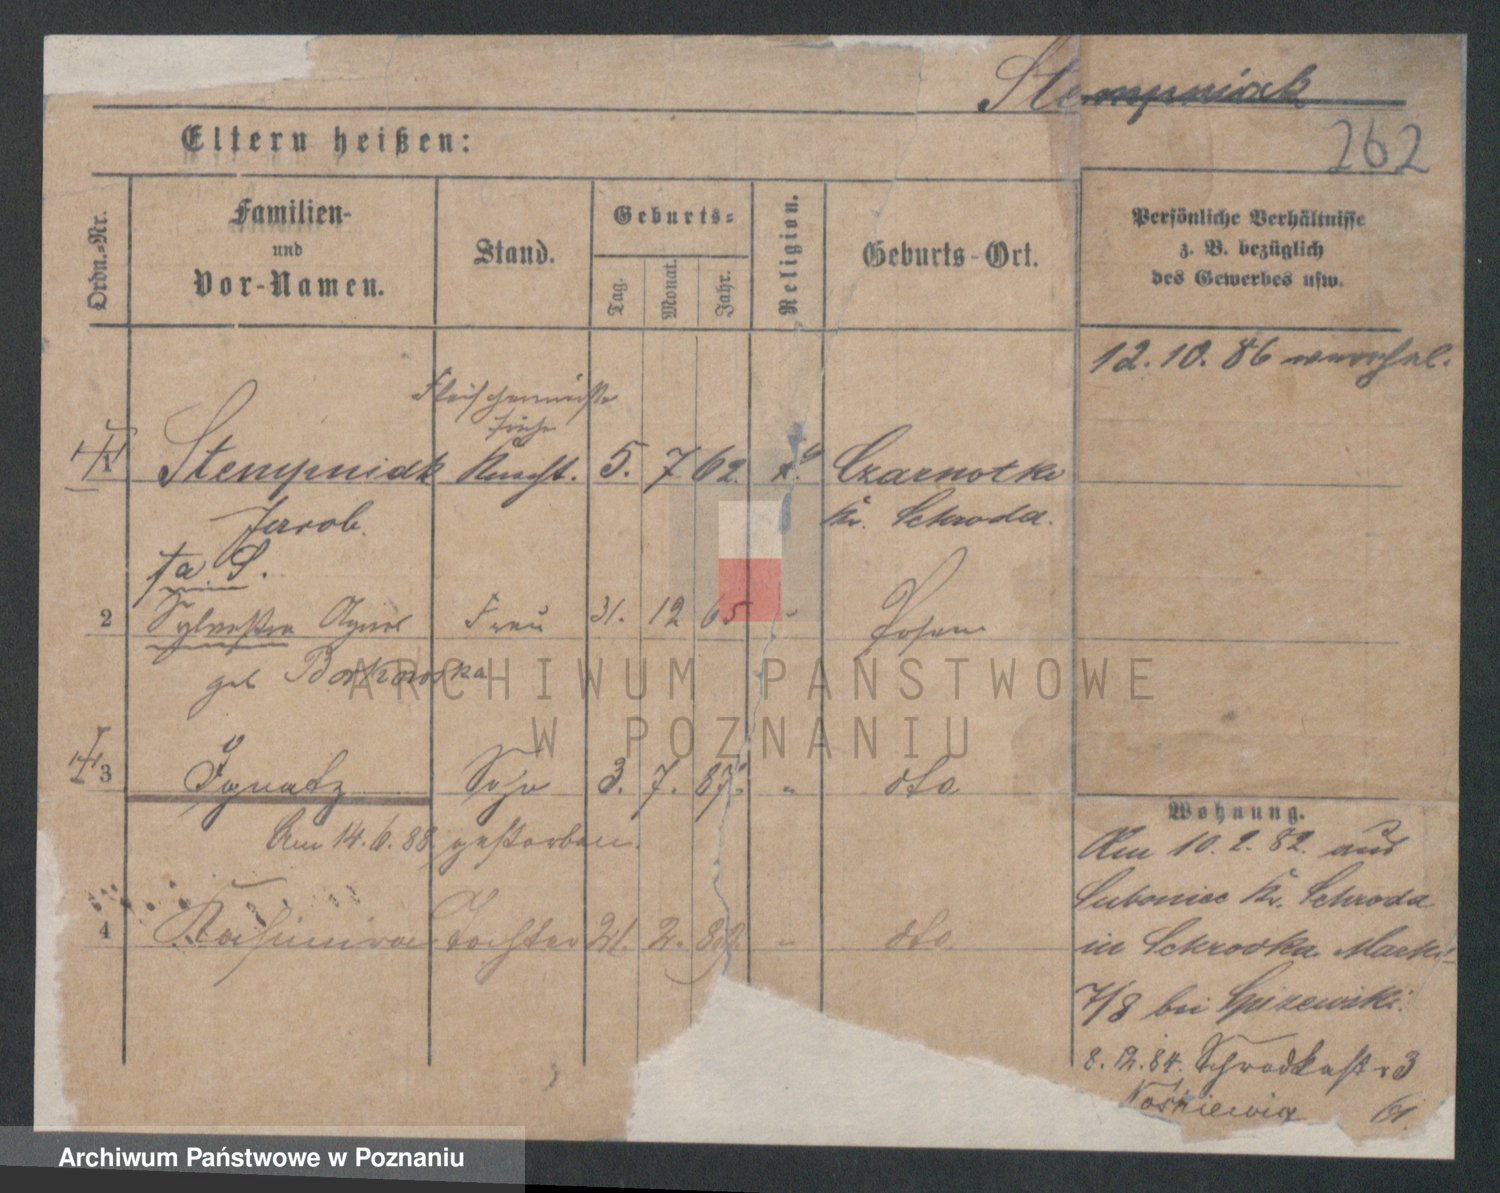 Stempniak
262
Eltern heißen:
Ordn.-Nr.
Familien-
und
Vor-Namen.
Stand.
Geburts-
Tag.
Monat.
Jahr.
Religion.
Geburts-Ort.
Persönliche Verhältnisse
z. B. bezüglich
des Gewerbes usw.
12. 10. 86
1 Stempniak Knecht. 5. 7 62. k. Czarnotki
Jacob. Kr. Schroda.
2 Sylvestra Agnes Frau 31. 12 65 " Posen
geb Borkowska
3 Ignatz Sohn 3. 7. 87. " dto
Am 14. 6. 88 gestorben.
4 Kasimira Tochter 21. 2. 89. " dto
Wohnung.
Am 10. 2. 82. aus
Luboniec Kr. Schroda
in Schrodka Markt
7/8 bei
8. 12. 84. Schrodkastr 3
ARCHIWUM PAŃSTWOWE
W POZNANIU
Archiwum Państwowe w Poznaniu